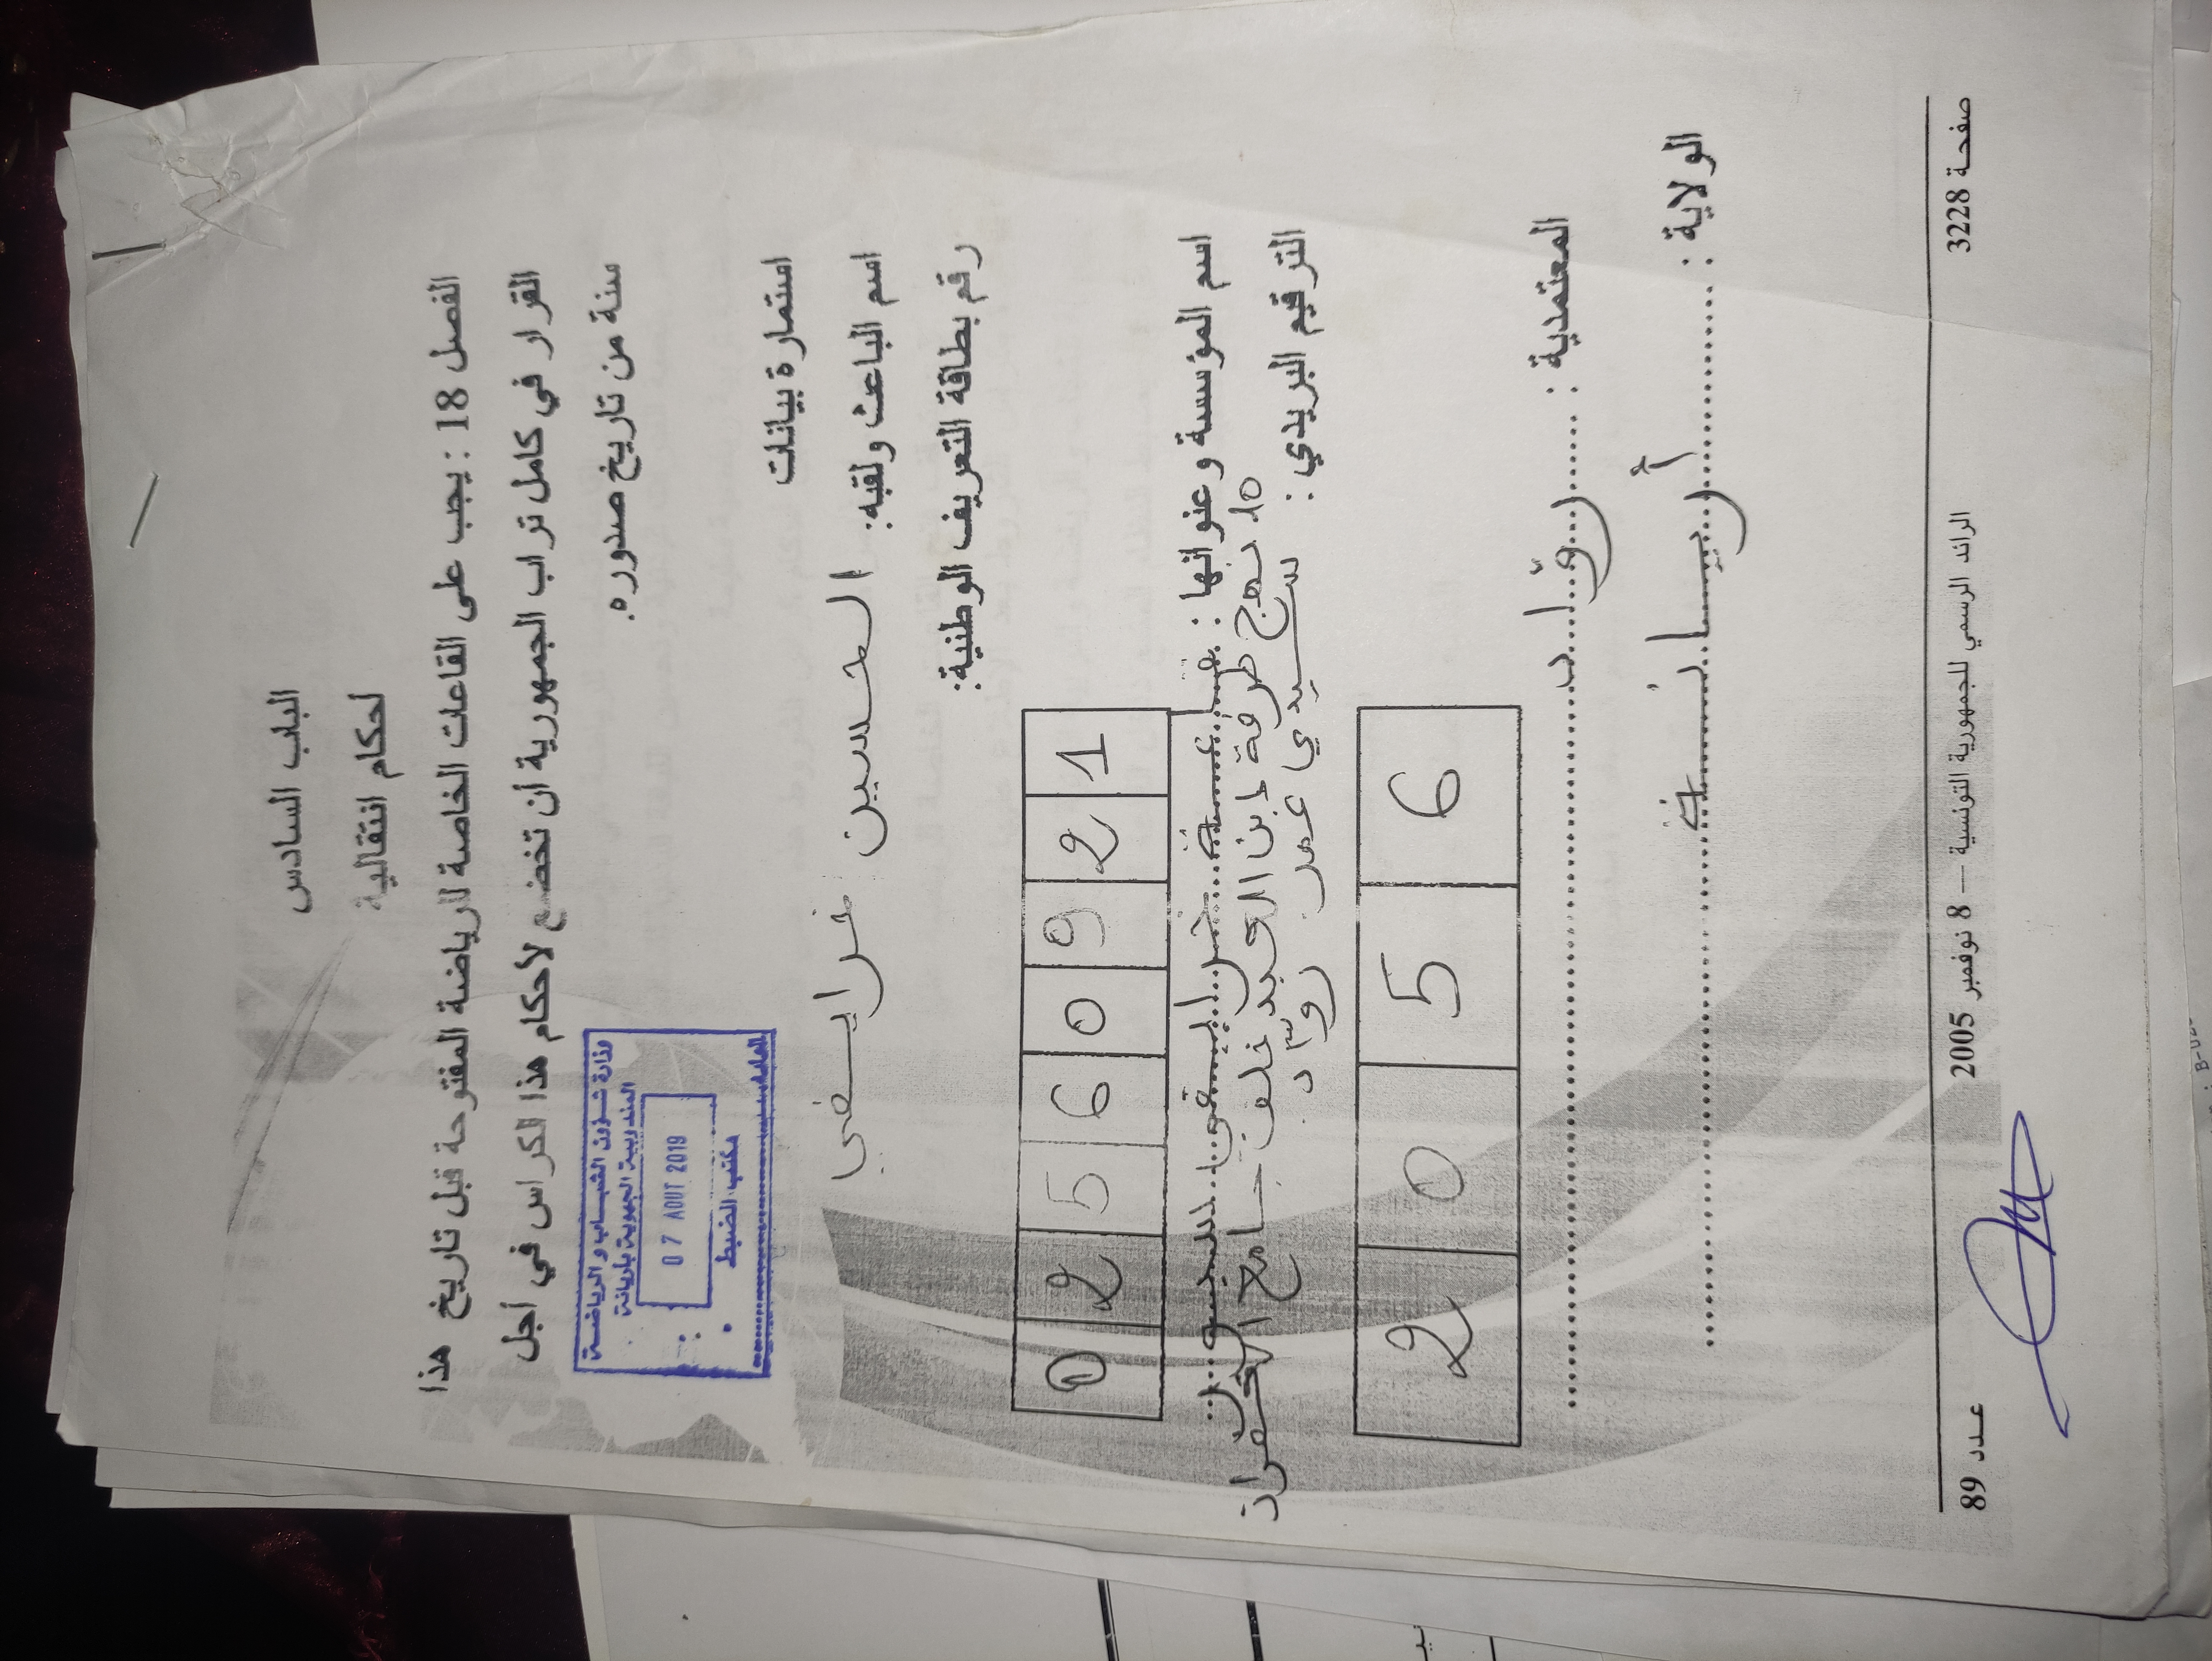 الباب السادس
أحكام انتقالية
الفصل 18 : يجب على القاعات الخاصة للرياضة المفتوحة قبل تاريخ هذا
القرار في كامل تراب الجمهورية أن تخضع لأحكام هذا الكراس في أجل
سنة من تاريخ صدوره.
وزارة شؤون الشباب و الرياضة
المندوبية الجهوية بأريانة
07 AOUT 2019
مكتب الضبط
استمارة بيانات
اسم الباعث ولقبه: الحسين خرايفي
رقم بطاقة التعريف الوطنية:
0 2 5 6 0 9 2 1
اسم المؤسسة وعنوانها :
10 نهج طرفة ابن العبد خلف جامع الغفران
الترقيم البريدي : سيدي عمر روّاد
2 0 5 6
المعتمدية : روّاد
الولاية : أريانة
عدد 89 الرائد الرسمي للجمهورية التونسية — 8 نوفمبر 2005 صفحة 3228